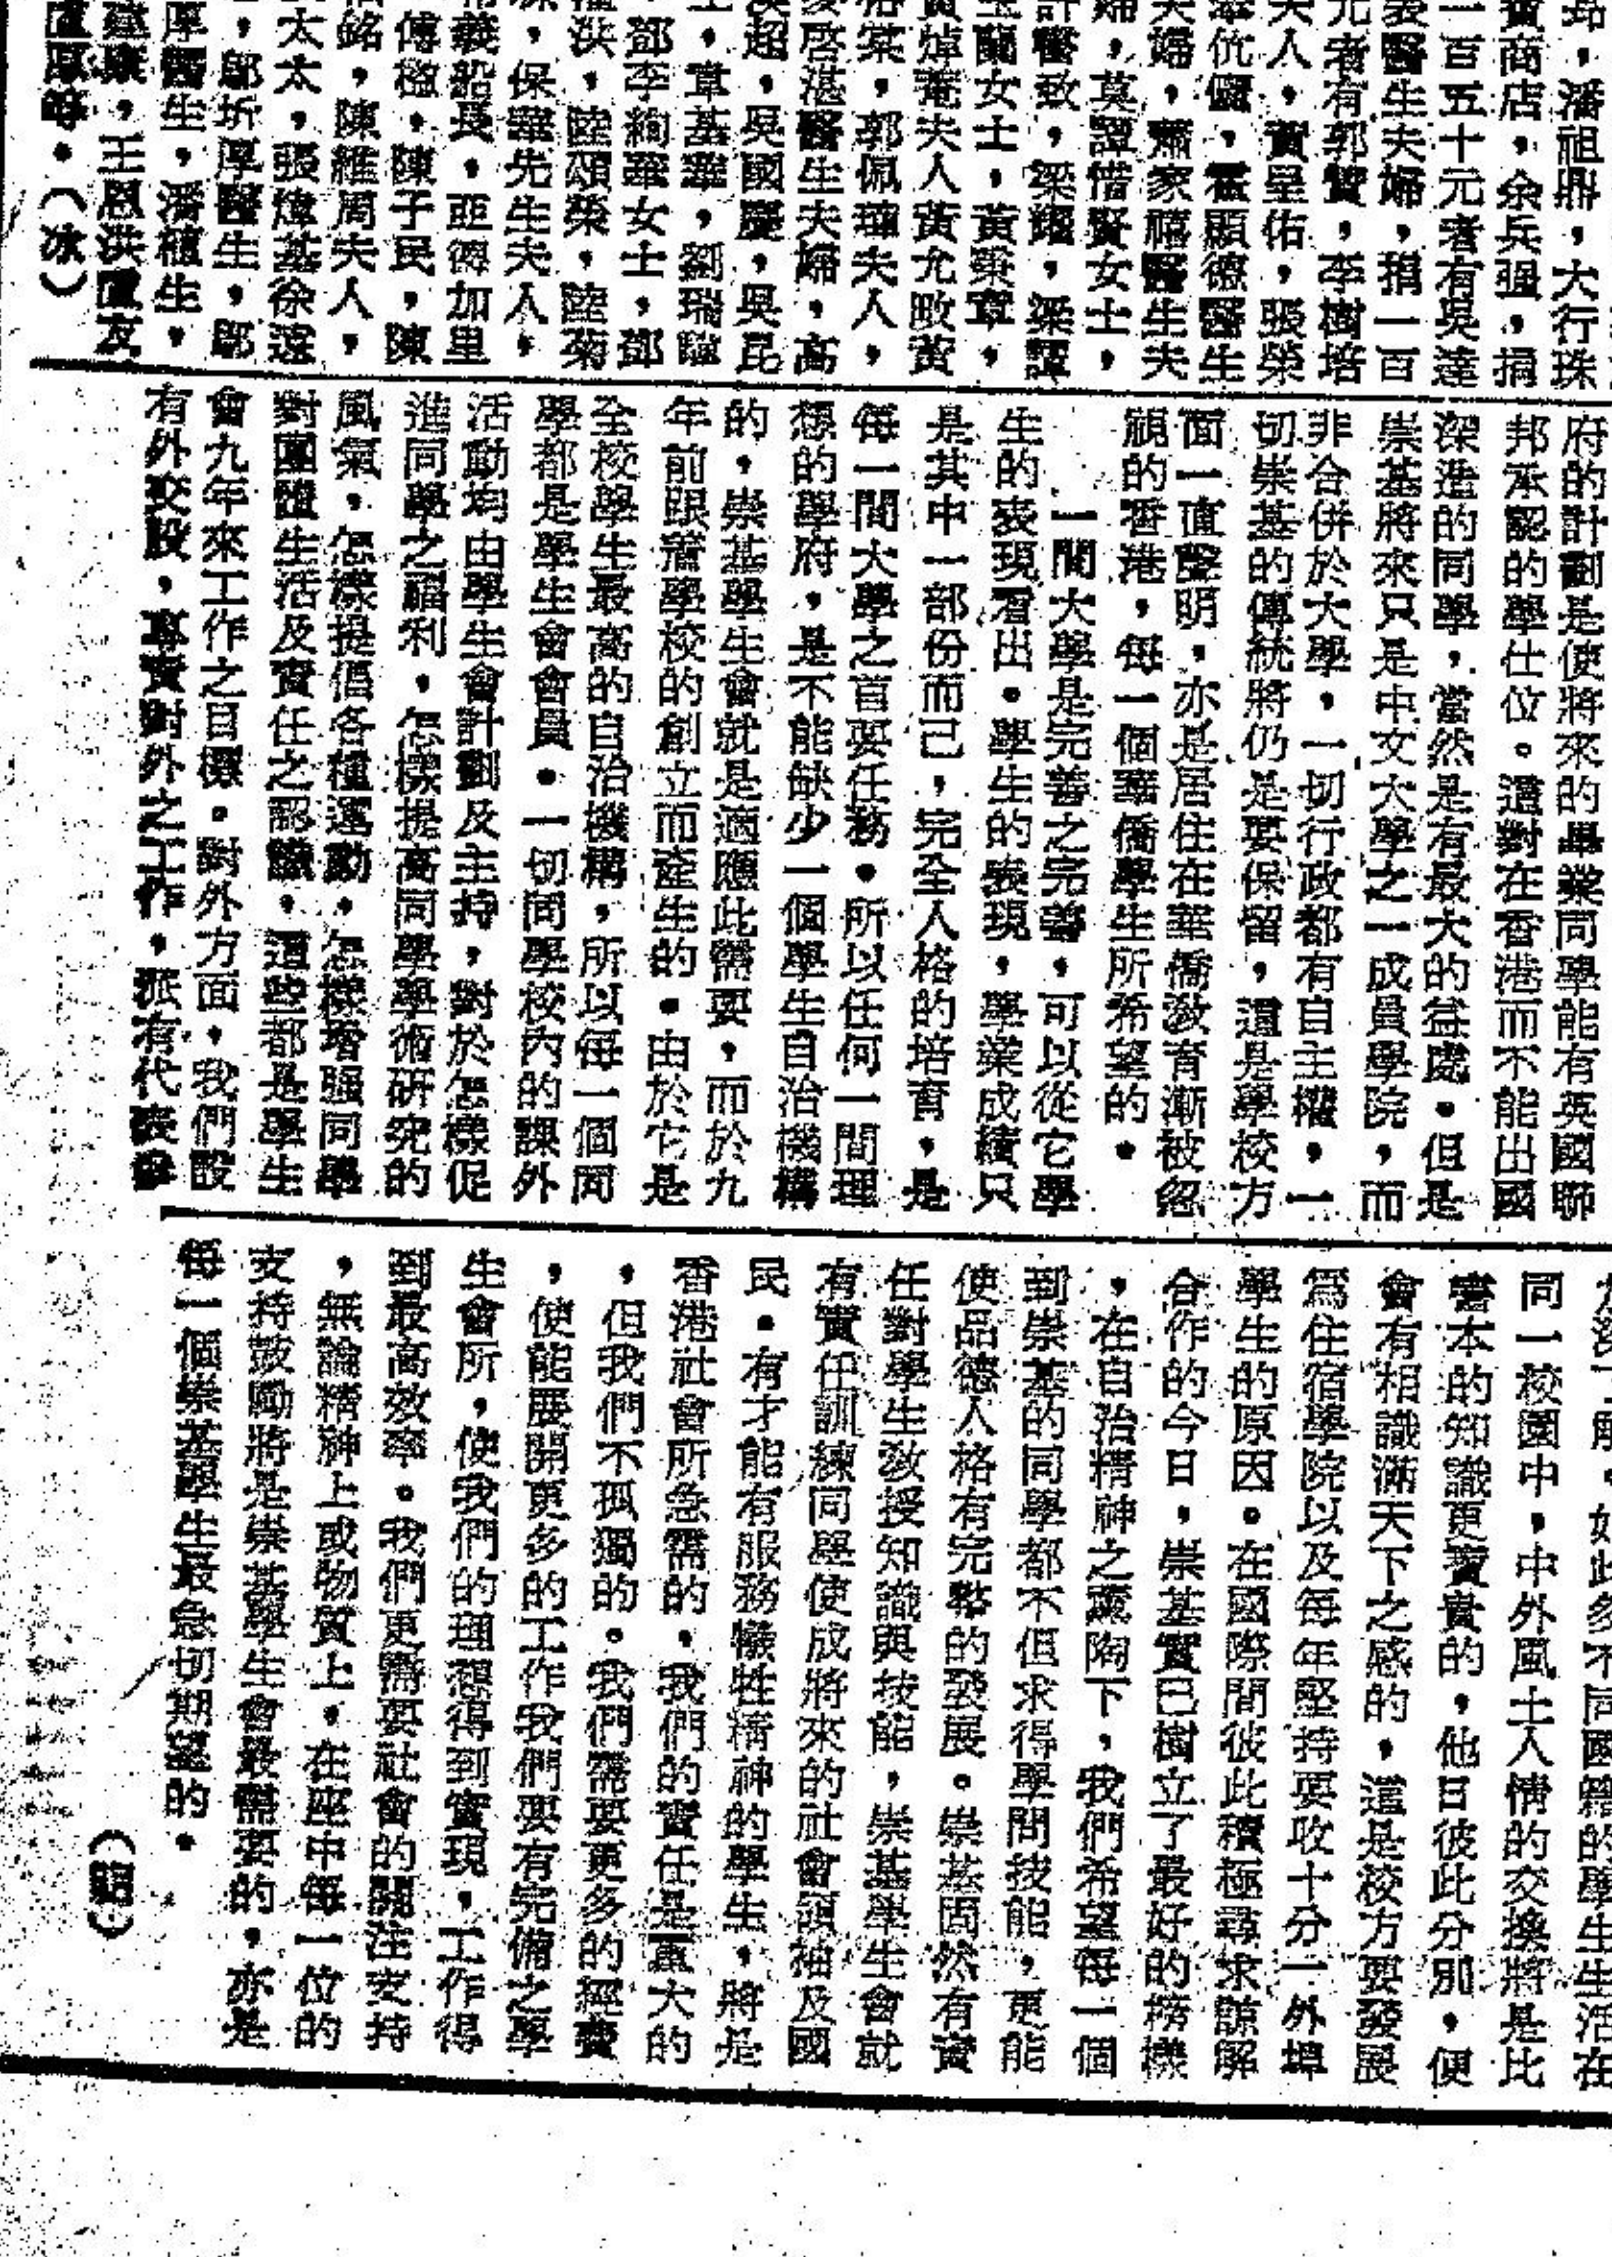 踎，潘祖鼎，大行珠
寶商店，余兵強，捐
一百五十元者有吳達
表醫生夫婦，捐一百
元者有郭贊，李樹培
夫人，黃呈佑，張榮
伉儷，霍顯德醫生
夫婦，蕭家禧醫生夫
婦，莫譚惜賢女士，
許醫致，梁蠲，梁譚
玉蘭女士，黃秉章，
黃焯菴夫人黃允畋黃
棠，郭佩瓊夫人，
麥啓湛醫生夫婦，高
超，吳國慶，吳昆
，章基華，劉瑞瓊
，鄧李絢華女士，鄧
洪，陸頌榮，陸菊
，保華先生夫人，
義船長，亞得加里
傅楹，陳子民，陳
銘，陳維周夫人，
太太，張煒基徐遠
，鄺圻厚醫生，鄺
厚醫生，潘植生，
，王恩洪盧友
盧厚每。（冰）
府的計劃是使將來的畢業同學能有英國聯
邦承認的學仕位。這對在香港而不能出國
深造的同學，當然是有最大的益處。但是
崇基將來只是中文大學之一成員學院，而
非合併於大學，一切行政都有自主權，一
切崇基的傳統將仍是要保留，這是學校方
面一直聲明，亦是居住在華僑教育漸被忽
視的香港，每一個華僑學生所希望的。
一間大學是完善之完善，可以從它學
生的表現看出。學生的表現，學業成績只
是其中一部份而己，完全人格的培育，是
每一間大學之首要任務。所以任何一間理
想的學府，是不能缺少一個學生自治機構
的，崇基學生會就是適應此需要，而於九
年前跟着學校的創立而產生的。由於它是
全校學生最高的自治機構，所以每一個同
學都是學生會會員。一切同學校內的課外
活動均由學生會計劃及主持，對於怎樣促
進同學之福利，怎樣提高同學學術研究的
風氣，怎樣提倡各種運動，怎樣增强同學
對團體生活及責任之認識，這些都是學生
會九年來工作之目標。對外方面，我們設
有外交股，專責對外之工作，派有代表參
友深了解，如此多不同國籍的學生生活在
同一校園中，中外風土人情的交換將是比
書本的知識更寶貴的，他日彼此分別，便
會有相識滿天下之感的，這是校方要發展
爲住宿學院以及每年堅持要收十分一外埠
學生的原因。在國際間彼此積極尋求諒解
合作的今日，崇基實已樹立了最好的榜樣
，在自治精神之薰陶下，我們希望每一個
到崇基的同學都不但求得學問技能，更能
使品德人格有完整的發展。崇基固然有責
任對學生教授知識與技能，崇基學生會就
有責任訓練同學使成將來的社會領袖及國
民。有才能有服務犧牲精神的學生，將是
香港社會所急需的，我們的責任是重大的
，但我們不孤獨的。我們需要更多的經費
，使能展開更多的工作我們要有完備之學
生會所，使我們的理想得到實現，工作得
到最高效率。我們更需要社會的關注支持
，無論精神上或物質上，在座中每一位的
支持鼓勵將是崇基學生會最需要的，亦是
每一個崇基學生最急切期望的。